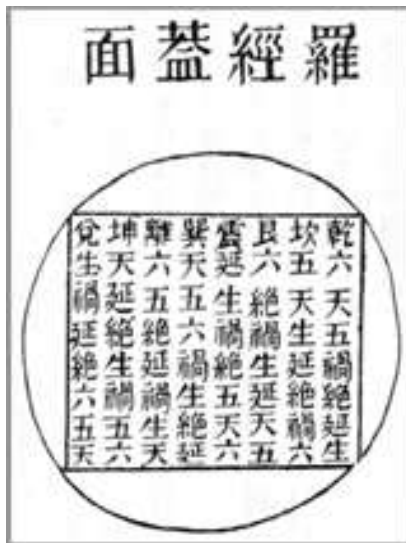 羅經蓋面
乾六天五禍絶延生
坎五天生延絶禍六
艮六絶禍生延天五
震延生禍絶五天六
巽天五六禍生絶延
離六五絶延禍生天
坤天延絶生禍五六
兌生禍延絶六五天